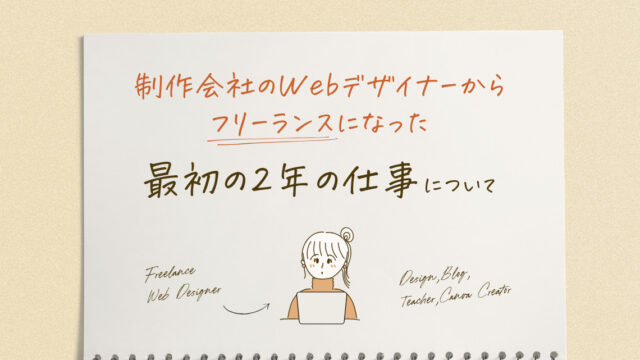 制作会社のWebデザイナーから
フリーランスになった
最初の2年の仕事について
Freelance
Web Designer
Design,Blog,
Teacher,Canva Creator